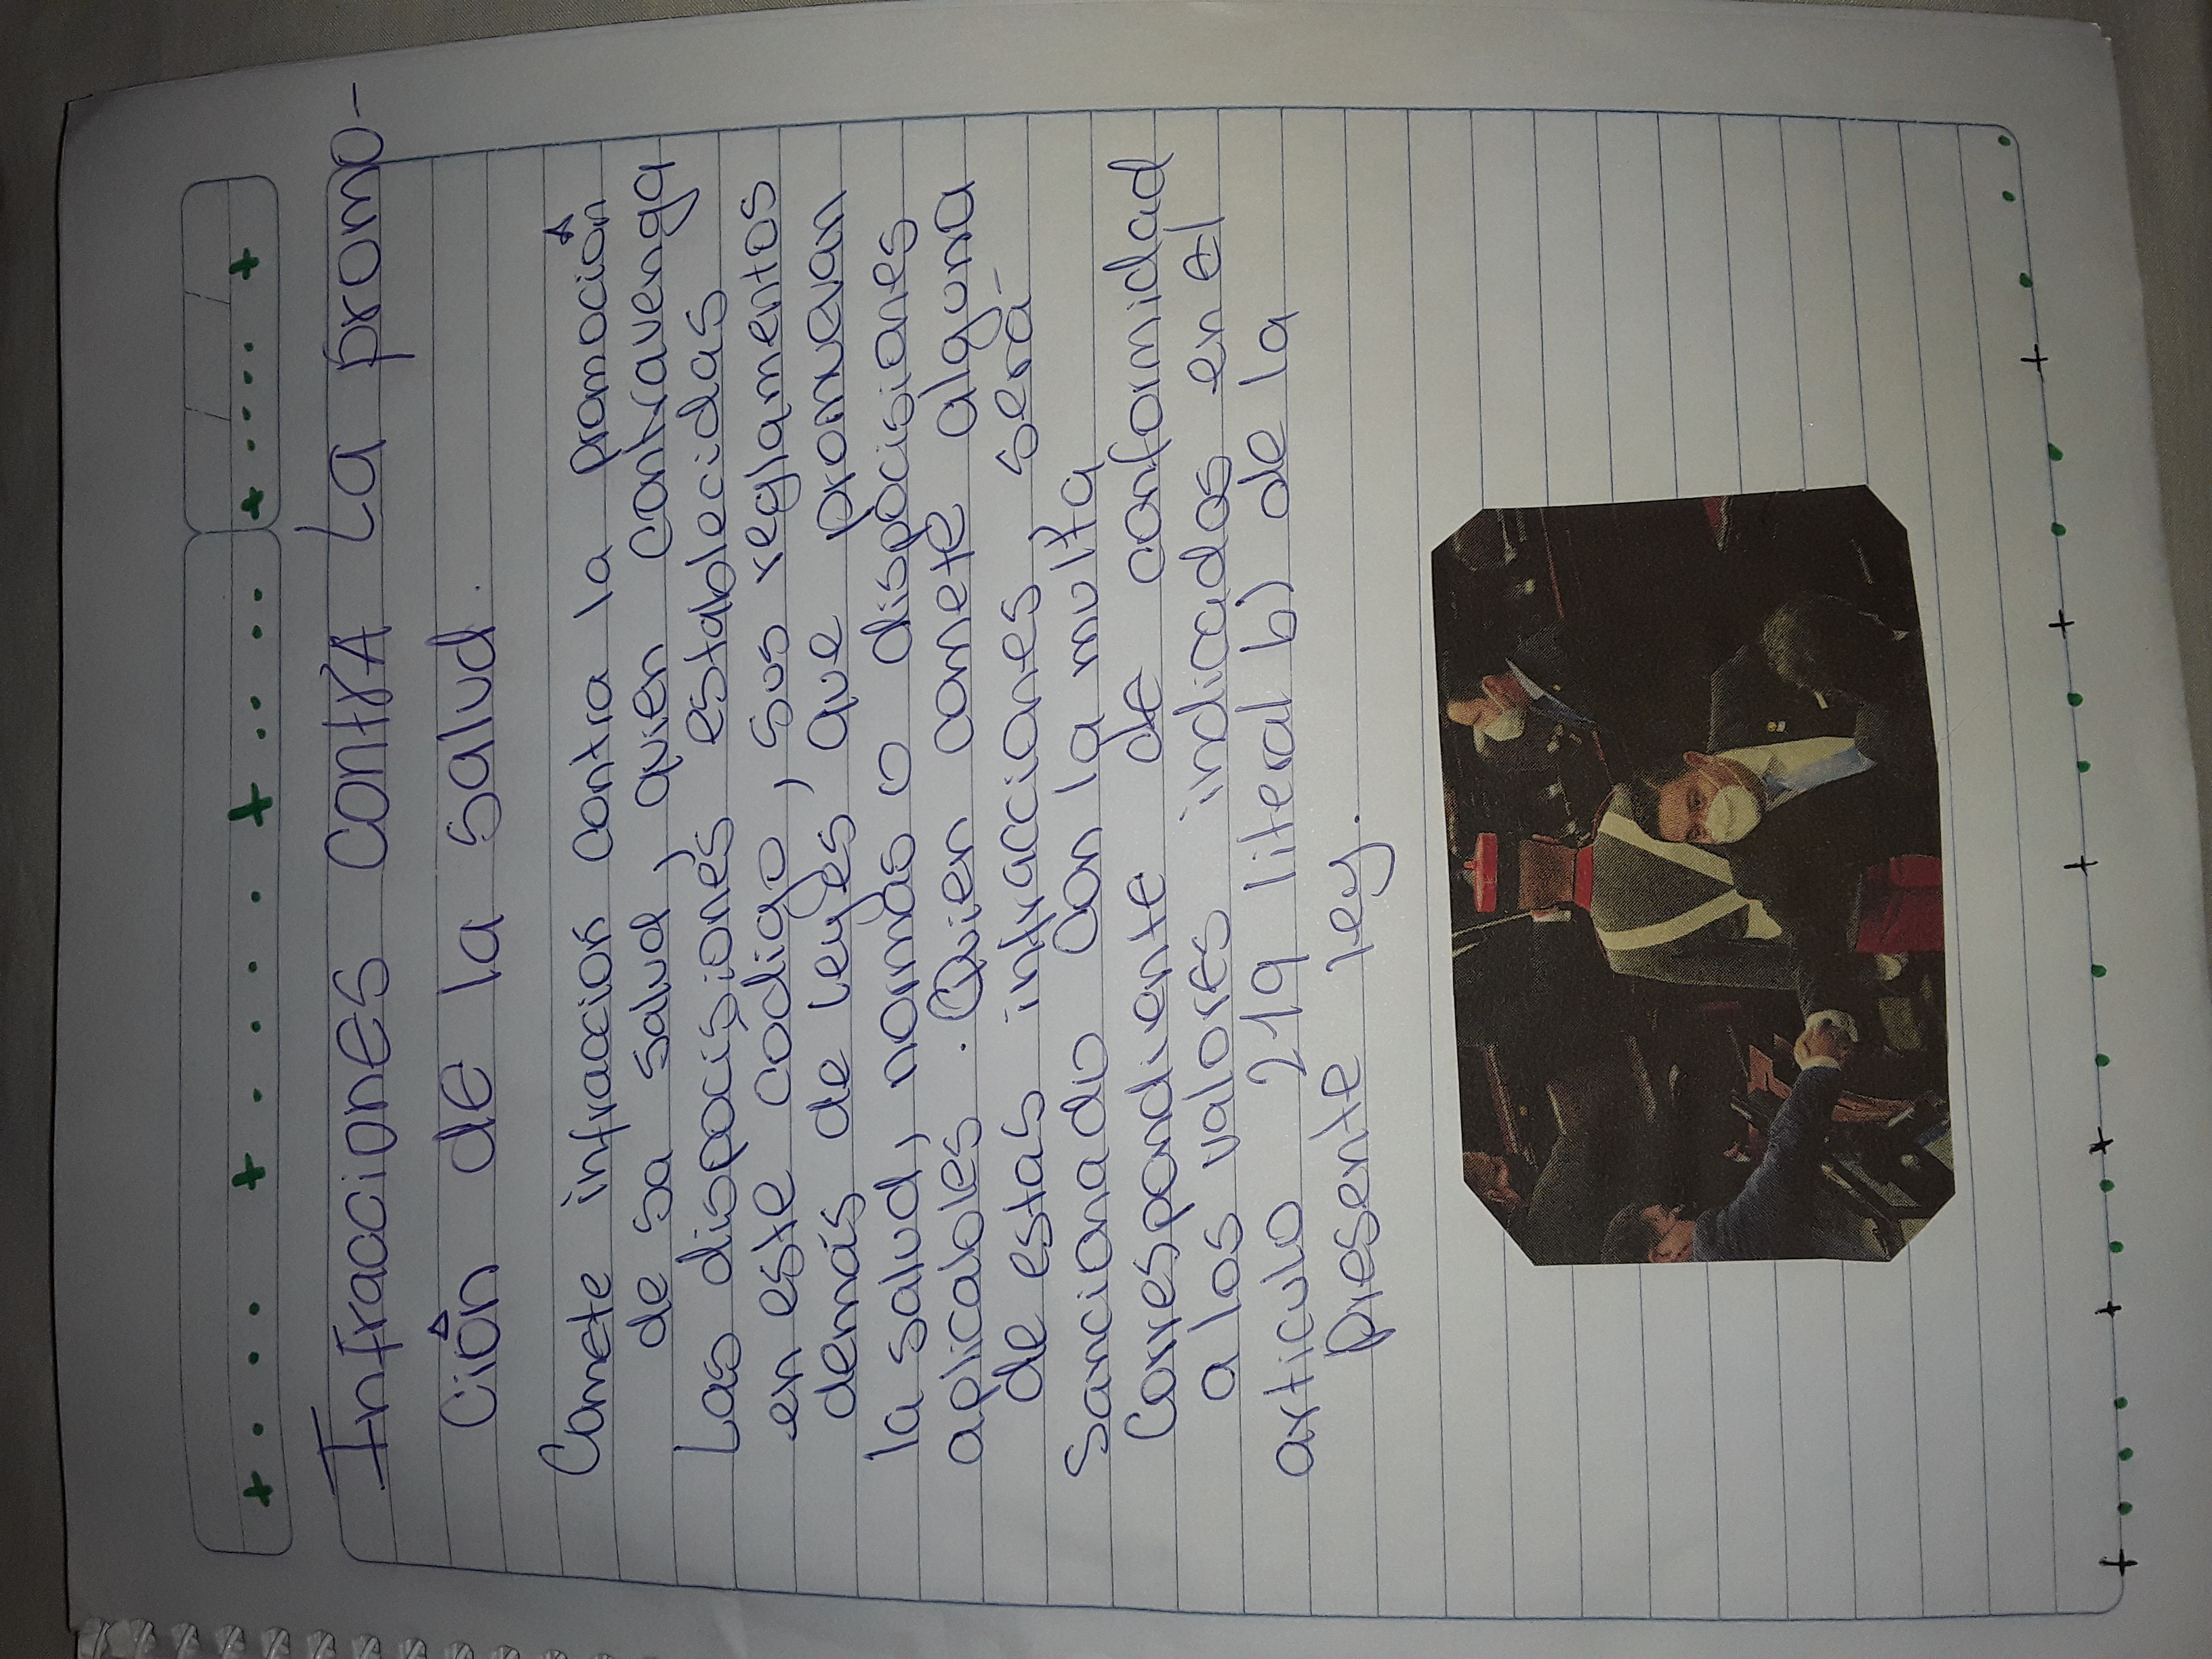 Infracciones contra La promo-
ción de la salud.
Comete infracción contra la promoción
de sa salud, quien contravenga
Las dispocisiones establecidas
en este codigo, sus reglamentos
demás de leyes, que promuevan
la salud, normas o dispocisiones
aplicables. Quien comete alguna
de estas infracciones será-
Sancionado con la multa
Correspondiente de conformidad
a los valores indicados en el
articulo 219 literal b) de la
presente ley.